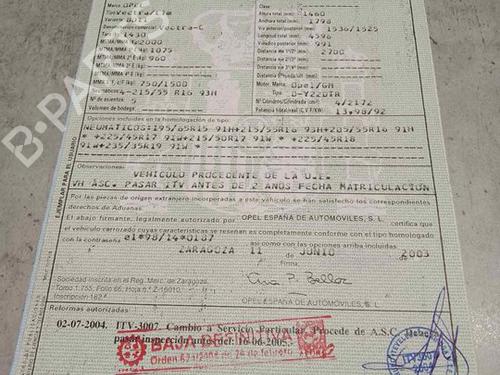 Marca OPEL
Tipo Vectra/LIM
Variante BJ11
Denominación comercial Vectra-C
Tara (kg) 1430
MTMA/MMA 2000
MTMA/MMA 1º E (kg) 1075
MTMA/MMA 2º E (kg) 960
MTMA/MMA 3º E (kg)
750/1500
4-215/55 R16 93H
Nº de asientos 5
Volumen de bodegas
Clase
Altura total (mm) 1460
Anchura total (mm) 1798
Vía anterior/posterior (mm) 1536/1525
Longitud total (mm) 4596
Voladizo posterior (mm) 991
2700
Motor: Marca Opel/GM
Tipo D-Y22DTR
Nº Cilindros/Cilindrada (cm³) 4/2172
Potencia fiscal/real (C.V.F./kW) 13,98/92
Opciones incluidas en la homologación de tipo:
NEUMATICOS:195/65R15 91H+215/55R16 93H+205/55R16 91H
*+225/45R17 91W+215/50R17 91W* *+225/45R18
91W+235/35R19 91W *
Observaciones:
VEHICULO PROCEDENTE DE LA U.E.
VH ASC. PASAR ITV ANTES DE 2 AÑOS FECHA MATRICULACION
EJEMPLAR PARA EL USUARIO
Por las piezas de origen extranjero incorporadas a este vehículo se han satisfecho los correspondientes
derechos de Aduanas.
El abajo firmante, legalmente autorizado por OPEL ESPAÑA DE AUTOMOVILES, S. L. certifica que
el vehículo carrozado cuyas características se reseñan es completamente conforme con el tipo homologado
con la contraseña e1*98/14*0187 así como con las opciones arriba incluidas
ZARAGOZA 11 JUNIO 2003
Firma
Sociedad inscrita en el Reg. Merc. de Zaragoza,
Tomo 1.755, Folio 66, Hoja nº Z-16010,
Inscripción 162.ª
OPEL ESPAÑA DE AUTOMOVILES, S. L.
Reformas autorizadas
02-07-2004. ITV-3007. Cambio a Servicio Particular. Procede de A.S.C.
pasar inspección antes del: 16-06-2005.
BAJA DEFINITIVA
B-PARTS